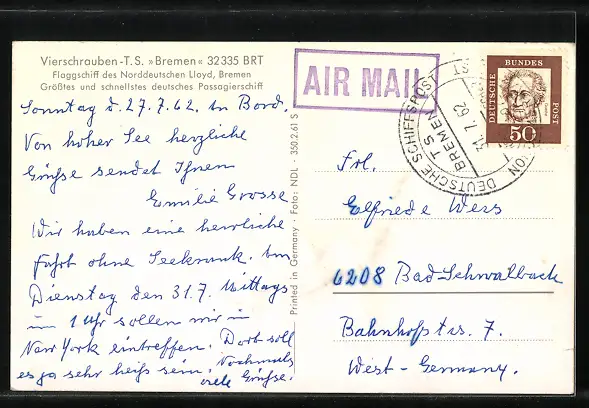 Vierschrauben-T.S. »Bremen« 32335 BRT
Flaggschiff des Norddeutschen Lloyd, Bremen
Größtes und schnellstes deutsches Passagierschiff
Sonntag d. 27.7.62. an Bord.
Von hoher See herzliche
Grüße sendet Ihnen
Emilie Grosse
Wir haben eine herrliche
Fahrt ohne Seekrank. Am
Dienstag den 31.7. Mittags
um 1 Uhr sollen wir in
New York eintreffen. Dort soll
es ja sehr heiß sein. Nochmals
viele Grüße.
Printed in Germany · Foto: NDL · 350.2.61 S
AIR MAIL
DEUTSCHE SCHIFFSPOST
TS
BREMEN
7.62
DEUTSCHE
BUNDES
POST
50
Frl.
Elfriede Weis
6208 Bad Schwalbach
Bahnhofstrs. 7.
West-Germany.